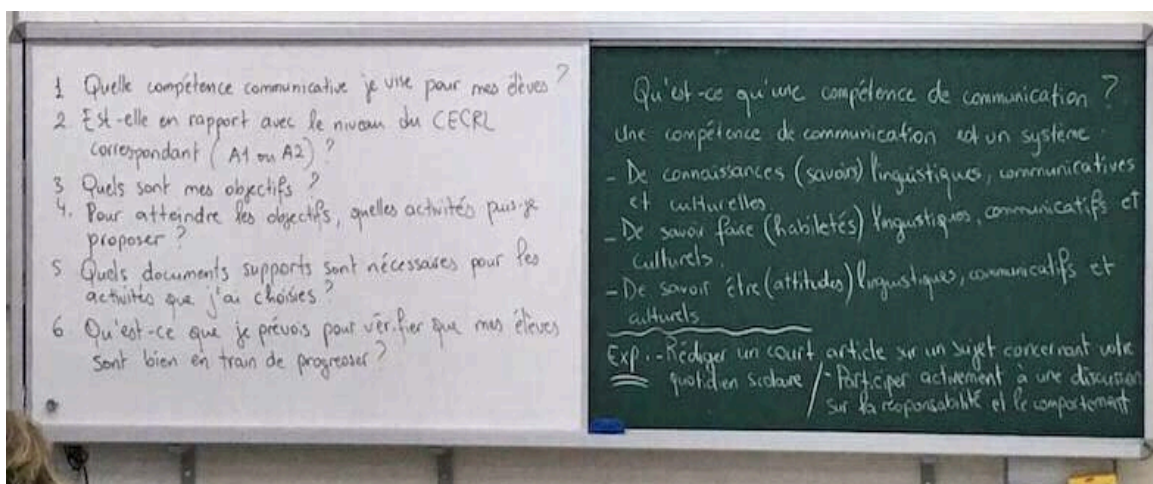 1 Quelle compétence communicative je vise pour mes élèves ?
2. Est-elle en rapport avec le niveau du CECRL
correspondant (A1 ou A2) ?
3 Quels sont mes objectifs ?
4. Pour atteindre les objectifs, quelles activités puis-je
proposer ?
5 Quels documents supports sont nécessaires pour les
activités que j'ai choisies ?
6 Qu'est-ce que je prévois pour vérifier que mes élèves
sont bien en train de progresser ?
Qu'est-ce qu'une compétence de communication ?
Une compétence de communication est un système :
- De connaissances (savoirs) linguistiques, communicatives
et culturelles.
- De savoir faire (habiletés) linguistiques, communicatifs et
culturels.
- De savoir être (attitudes) linguistiques, communicatifs et
culturels
Exp. - Rédiger un court article sur un sujet concernant votre
quotidien scolaire / - Participer activement à une discussion
sur la responsabilité et le comportement